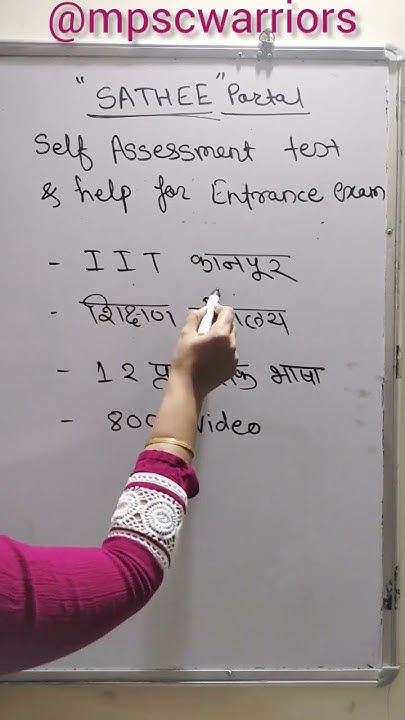 @mpscwarriors
"SATHEE" Portal
Self Assessment test
& help for Entrance exam
- IIT कानपूर
- शिक्षण
- 12 भाषा
- 800 video